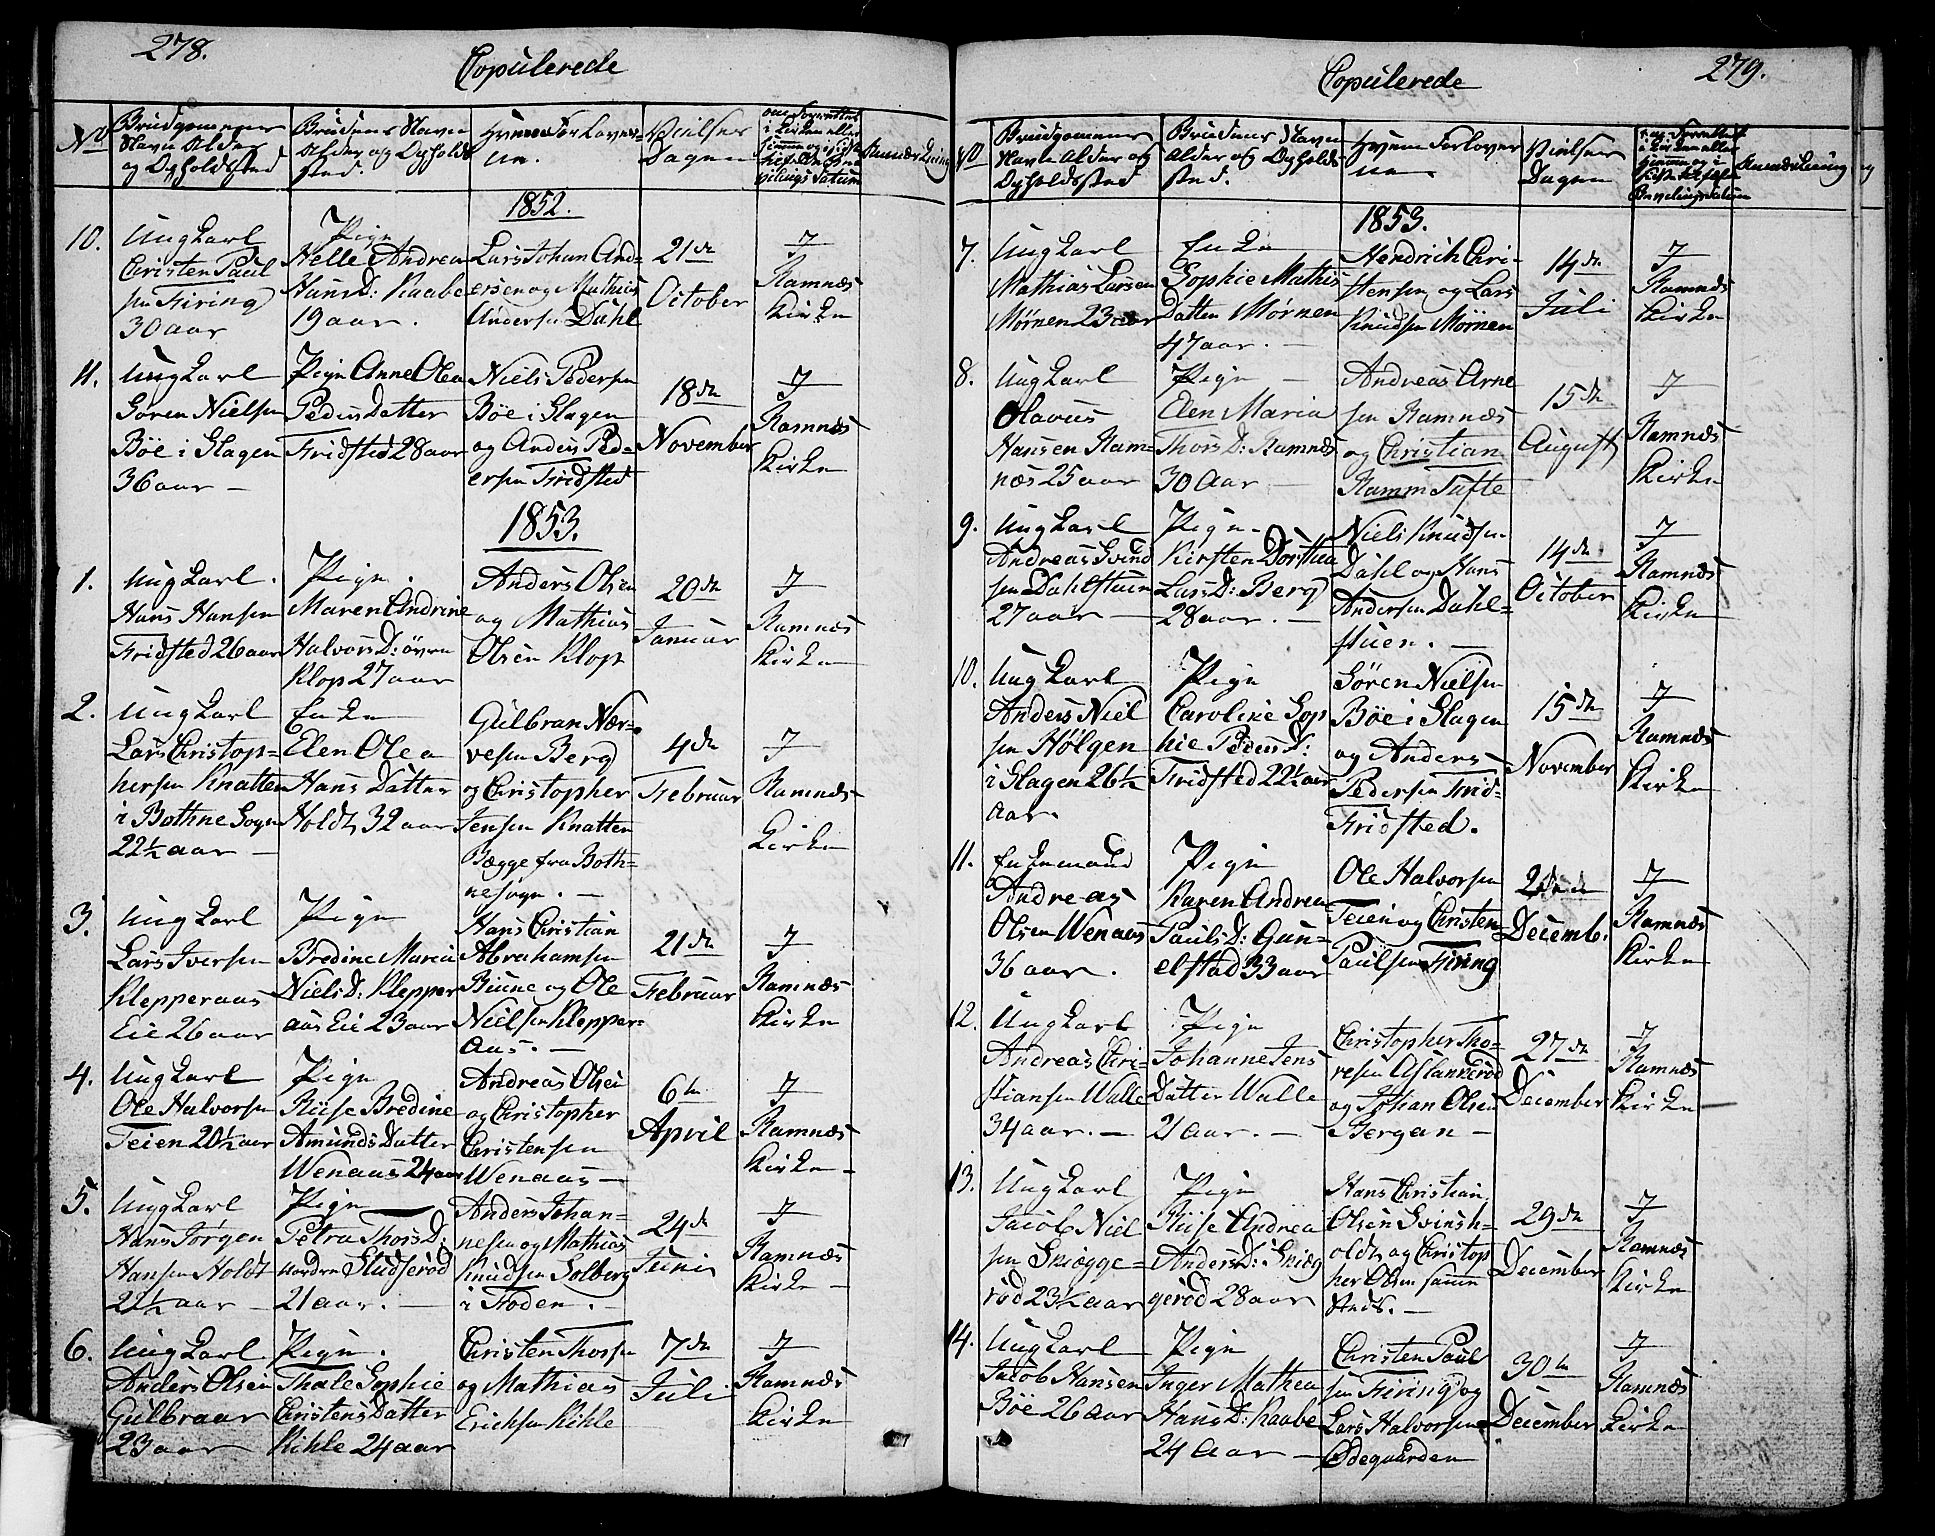 278.
Copulerede
No
Brudgommens Navn Alder og Opholdsted
Brudens Navn Alder og Opholdsted.
Hvem Forlovere.
Vielses Dagen
Anmærkning
1852.
10.
Ungkarl
Christen Paulsen Firing
30 aar
Pige
Helle Andrea
Hans D: Raabe
19 aar.
Lars Johan Andersen og Mathias
Andersen Dahl
21de
October
I
Ramnæs
Kirke
11.
Ungkarl
Søren Nielsen
Böe i Slagen
36 aar
Pige Anne Olea
Peders Datter
Fridsted 28 aar
Niels Pedersen
Böe i Slagen
og Anders Pedersen Fridsted
18de
November
I
Ramnæs
Kirke
1853.
1.
Ungkarl.
Hans Hansen
Fridsted 26 aar
Pige.
Maren Andrine
Halvors D: övre
Klop 27 aar
Anders Olsen
og Mathias
Olsen Klop
20de
Januar
I
Ramnæs
Kirke
2.
Ungkarl
Lars Christophersen Knatten
i Bothne Sogn
22½ aar
Enke
Elen Olea
Hans Datter
Holdt 32 aar
Gulbran Nærvesen Berg
og Christopher
Jensen Knatten
Bægge fra Bothnesogn.
4de
Februar
I
Ramnæs
Kirke
3.
Ungkarl
Lars Iversen
Klepperaas
Eie 26 aar
Pige
Bredine Maria
Niels D: Klepperaas Eie 23 aar
Hans Christian
Abrahamsen
Buene og Ole
Nielsen Klepperaas.
21de
Februar
I
Ramnæs
Kirke
4.
Ungkarl
Ole Halvorsen
Teien 20½ aar
Pige
Riise Bredine
Amunds Datter
Wenaas 24 aar
Andreas Olsen
og Christopher
Christensen
Wenaas
6te
April
I
Ramnæs
Kirke
5.
Ungkarl
Hans Jørgen
Hansen Holdt
22½ aar
Pige
Petra Thors D:
nordre Studserød
21 aar.
Anders Johannesen og Mathias
Knudsen Solberg
i Foden.
24de
Juni
I
Ramnæs
Kirke
6.
Ungkarl.
Anders Olsen
Gulbraar
23 aar
Pige.
Thale Sophie
Christens Datter
Kihle 24 aar
Christen Thorsen
og Mathias
Erichsen Kihle
7de
Juli
I
Ramnæs
Kirke
279.
Copulerede
No
Brudgommens Navn Alder og Opholdsted
Brudens Navn Alder og Opholdsted.
Hvem Forlovere
Vielses Dagen
Anmærkning
1853.
7.
Ungkarl
Mathias Larsen
Mørnen 23 aar
Enke
Sophie Mathis
Datter Mørnen
47 aar.
Hendrich Christensen og Lars
Knudsen Mørnen
14de
Juli
I
Ramnæs
Kirke
8.
Ungkarl
Olavus
Hansen Ramnæs 25 aar
Pige
Elen Maria
Thors D: Ramnæs
30 Aar
Andreas Arnesen Ramnæs
og Christian
Ramm Tufte
15de
August
I
Ramnæs
Kirke
9.
Ungkarl
Andreas Svendsen Dahlstuen
27 aar
Pige
Kirsten Dorthea
Lars D: Berg
28 aar.
Niels Knudsen
Dahl og Hans
Andersen Dahlstuen.
14de
October
I
Ramnæs
Kirke
10.
Ungkarl
Anders Nielsen Hølgen
i Slagen 26½
Aar.
Pige
Caroline Sophie Peders D:
Fridsted 22½ aar
Søren Nielsen
Böe i Slagen
og Anders
Pedersen Frid-
Fridsted.
15de
November
I
Ramnæs
Kirke
11.
Enkemand
Andreas
Olsen Wenaas
36 aar.
Pige
Karen Andrea
Pauls D: Gunelstad 33 aar
Ole Halvorsen
Teien og Christen
Paulsen Firing
Decemb.
I
Ramnæs
Kirke
12.
Ungkarl
Andreas Christiansen Walle
34 aar.
Pige
Johanne Jens
Datter Walle
21 aar.
Christopher Thoresen Aslankerød
og Johan Olsen
Bergan
27de
December
I
Ramnæs
Kirke
13.
Ungkarl
Jacob Nielsen Skiøggerød 23½ aar
Pige
Riise Andrea
Anders D: Skiøggerød 28 aar
Hans Christian
Olsen Svinsholdt og Christopher Olsen samme
Steds.
29de
December
I
Ramnæs
Kirke
14.
Ungkarl
Jacob Hansen
Böe 26 aar
Pige
Inger Mathea
Hans D: Raabe
24 aar
Christen Paulsen Firing og
Lars Halvorsen
Ødegaarden
30te
December
I
Ramnæs
Kirke